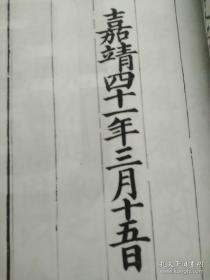 嘉靖四十一年三月十五日